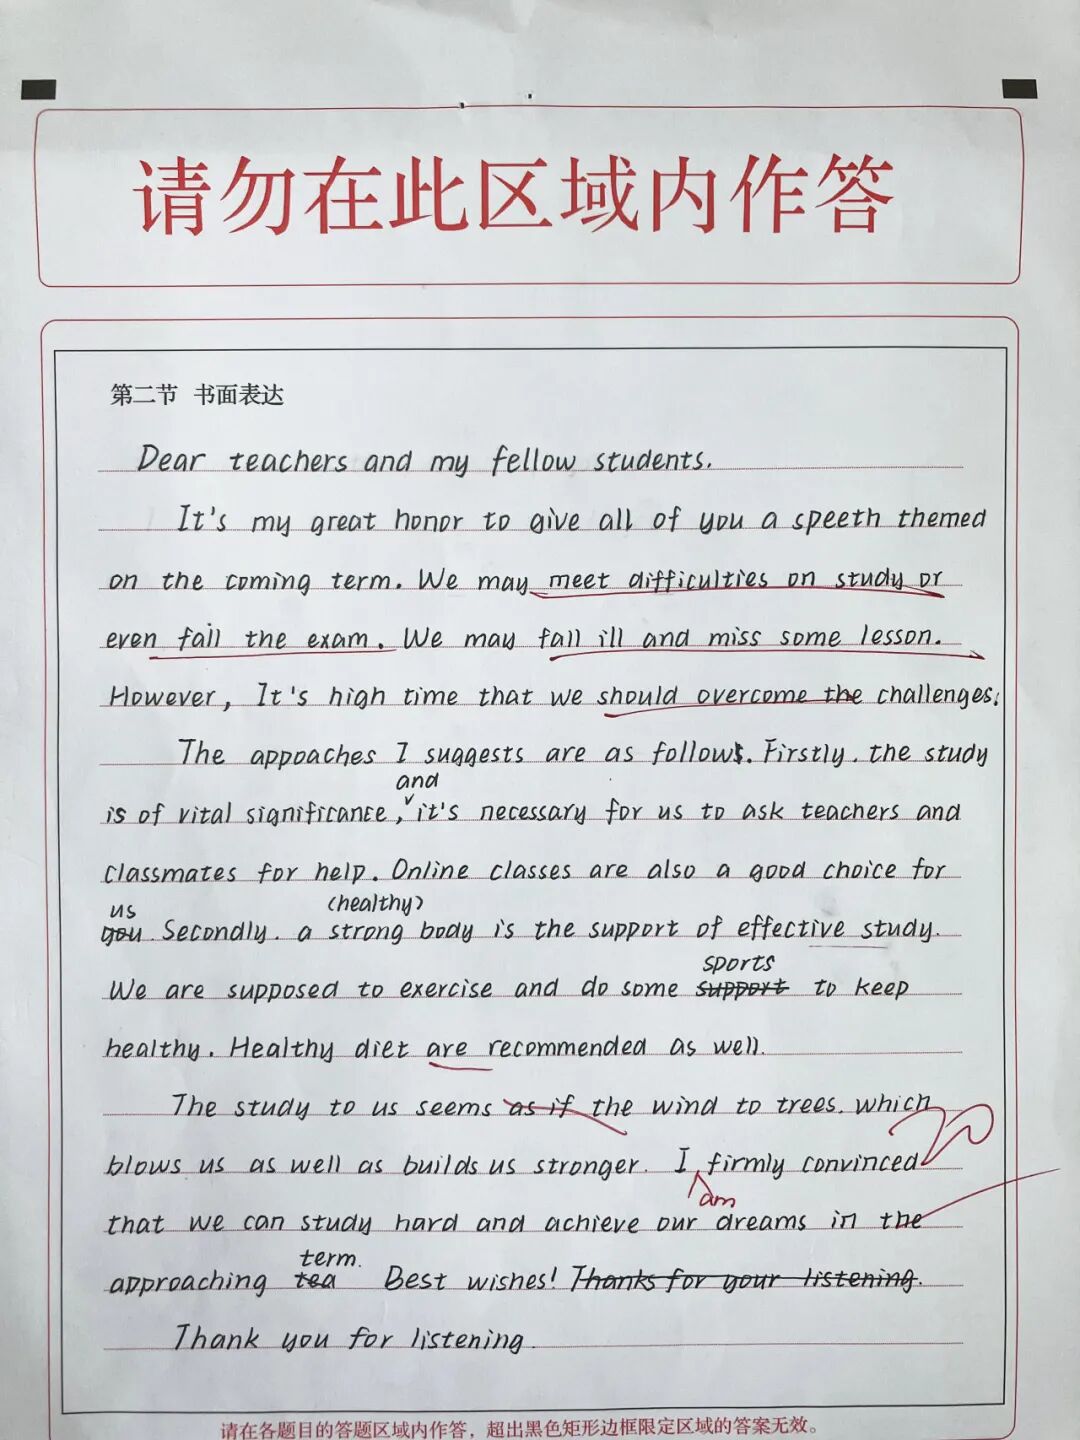 请勿在此区域内作答
第二节 书面表达
Dear teachers and my fellow students.
It's my great honor to give all of you a speeth themed
on the coming term. We may meet difficulties on study or
even fail the exam. We may fall ill and miss some lesson.
However, It's high time that we should overcome the challenges.
The appoaches I suggests are as follows. Firstly. the study
and
is of vital significance, it's necessary for us to ask teachers and
classmates for help. Online classes are also a good choice for
us (healthy)
you. Secondly. a strong body is the support of effective study.
sports
We are supposed to exercise and do some support to keep
healthy. Healthy diet are recommended as well.
The study to us seems as if the wind to trees. which
20
blows us as well as builds us stronger. I firmly convinced
am
that we can study hard and achieve our dreams in the
term.
approaching tea Best wishes! Thanks for your listening.
Thank you for listening.
请在各题目的答题区域内作答，超出黑色矩形边框限定区域的答案无效。